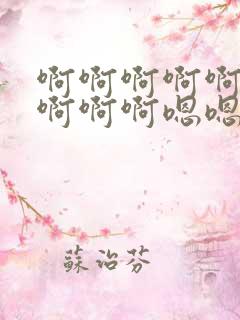 啊啊啊啊啊
啊啊啊嗯嗯
蘇治芬